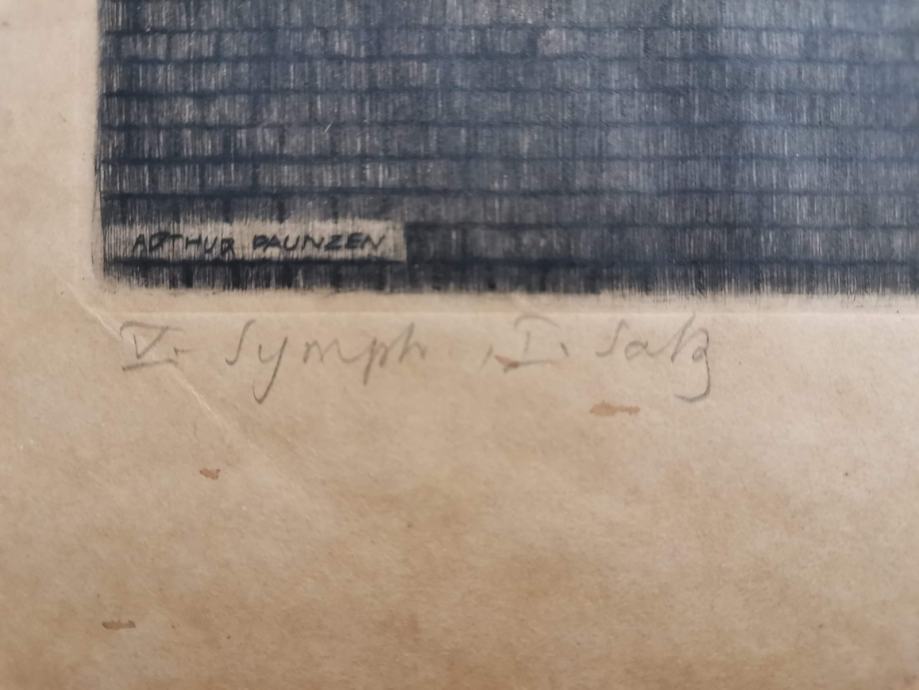 ARTHUR PAUNZEN
V. Symph , I. Satz